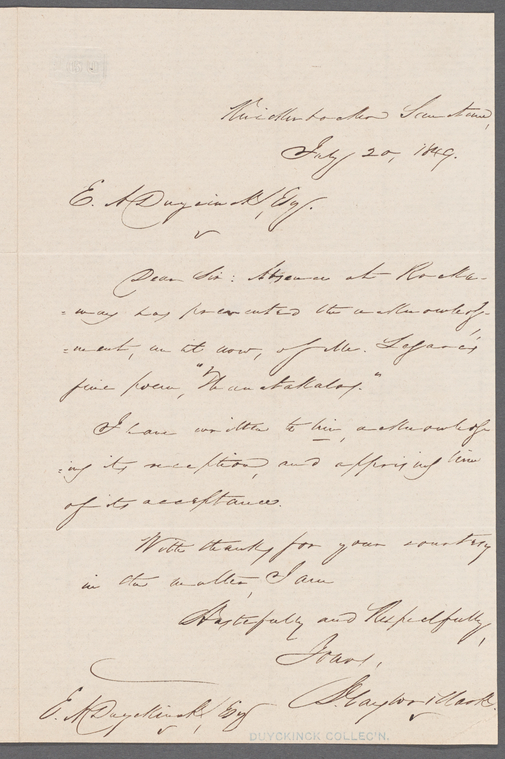 Knickerbocker Sanctum,
July 20, 1849.
E. A Duyckinck, Esq.
Dear Sir: Absence at Rocka-
=way has prevented the acknowledg-
=ment, until now, of Mr. Legaré's
fine poem,
I have written to him, acknowledg-
=ing its reception, and apprising him
of its acceptance.
With thanks for your courtesy
in the matter, I am
Hastefully and Respectfully,
Yours,
L. Gaylord Clark.
E. A Duyckinck, Esq
DUYCKINCK COLLEC'N.